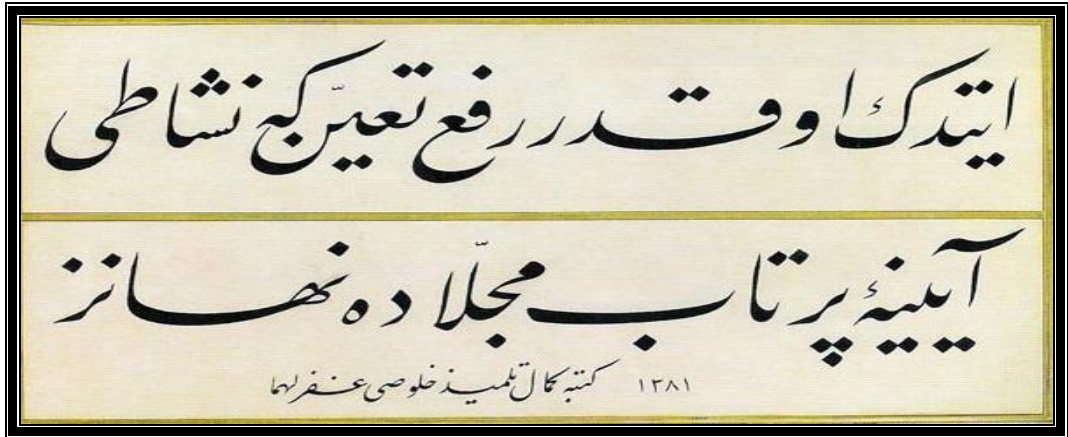 ایتدك او قدر رفع تعیّن كه نشاطی
آیینۀ پر تاب مجلّاده نهانز
كتبه كمال تلمیذ خلوصی غفر لهما ١٣٨١